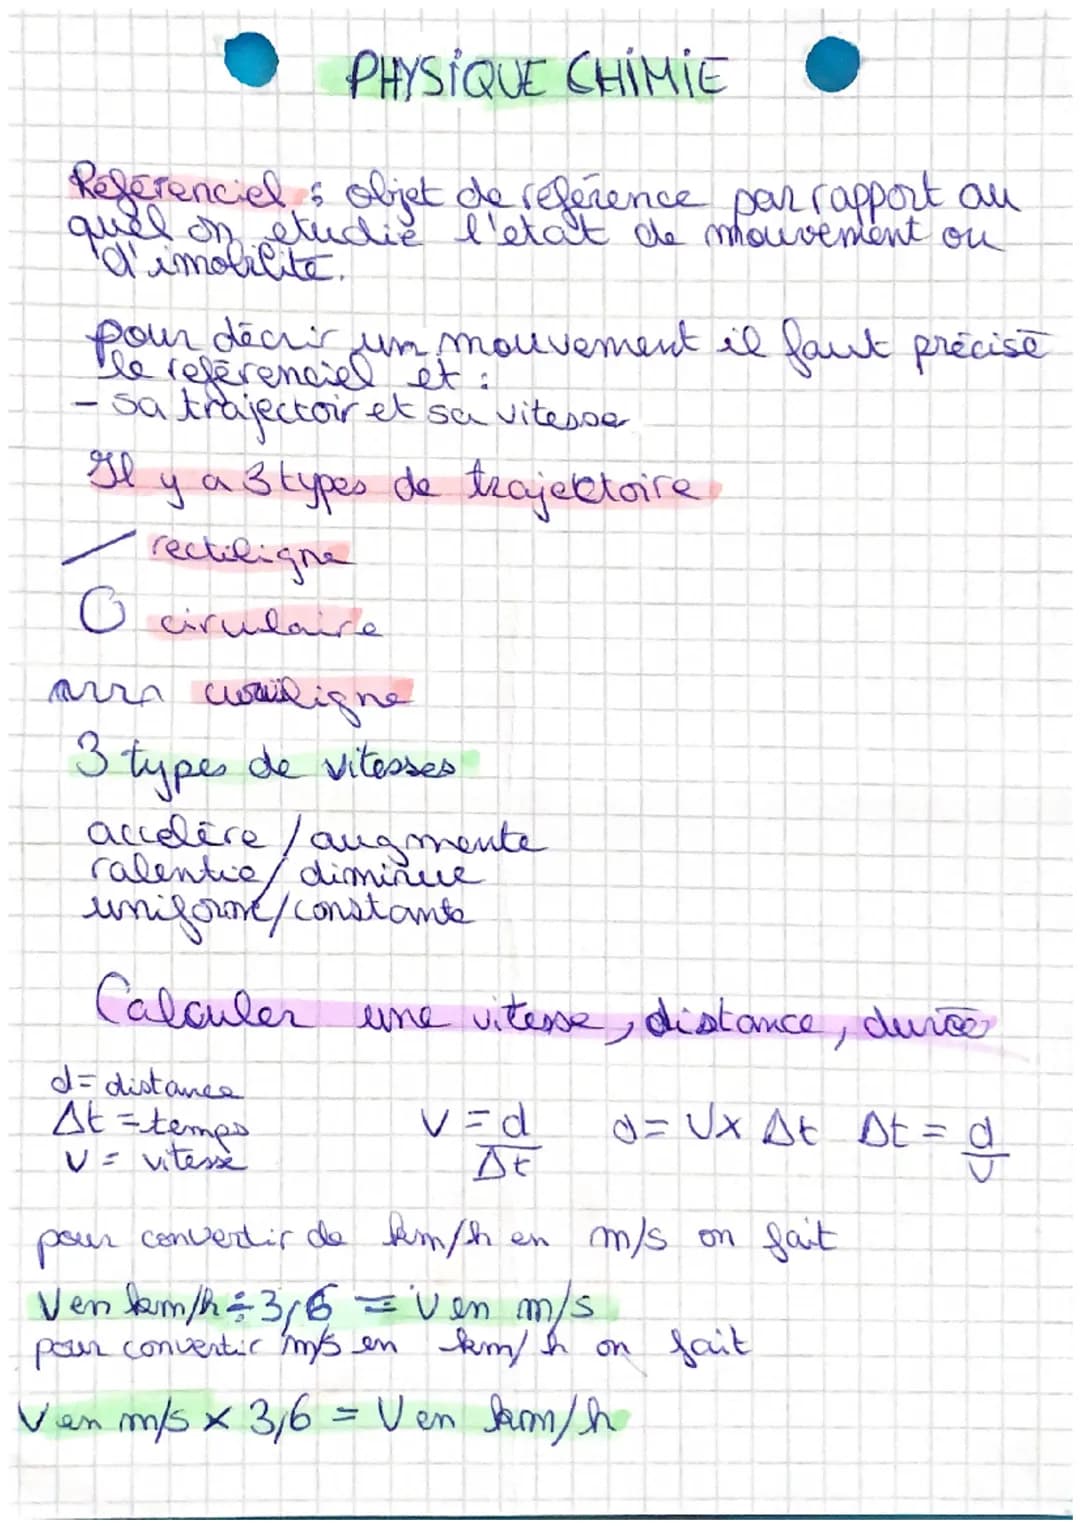 PHYSIQUE CHIMIE
Référenciel : objet de référence par rapport au
quel on étudie l'état de mouvement ou
d'imobilité.
pour décrir un mouvement il faut précisé
le reférenciel et :
- sa trajectoir et sa vitesse
Il y a 3 types de trajectoire
rectiligne
circulaire
curviligne
3 types de vitesses
accelère / augmente
ralentie / diminue
uniforme / constante
Calculer une vitesse, distance, durée
d = distance
Δt = temps
V = vitesse
V = d/Δt d = V x Δt Δt = d/V
pour convertir de km/h en m/s on fait
V en km/h ÷ 3,6 = V en m/s
pour convertir m/s en km/h on fait
V en m/s x 3,6 = V en km/h